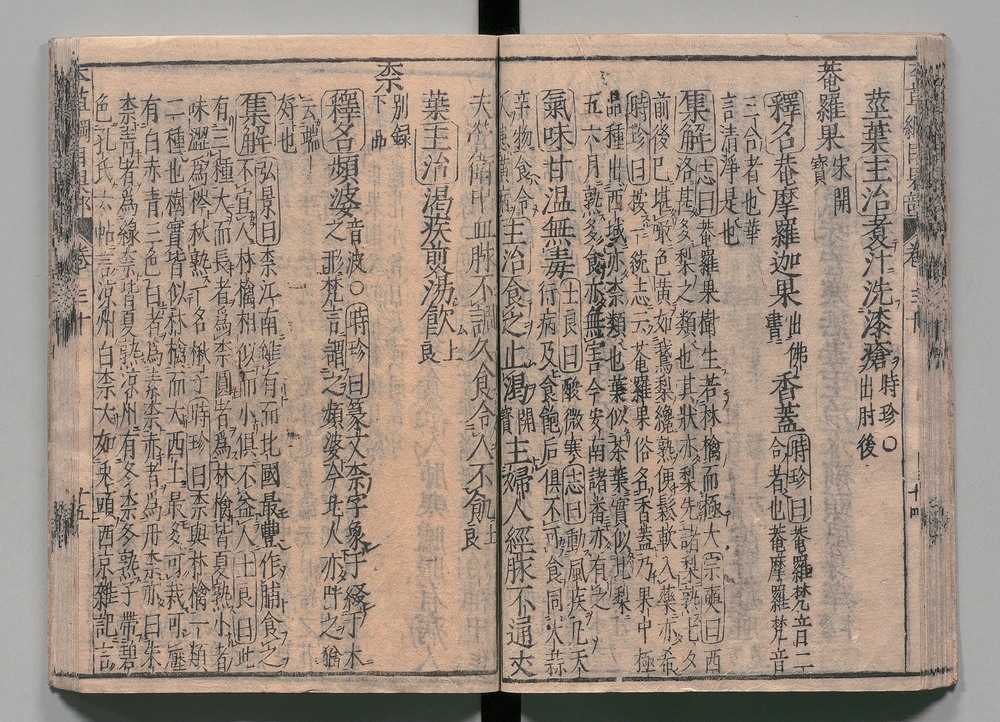 莖葉主治煑汁洗漆瘡時珍○出肘後
菴羅果宋開寶
釋名菴摩羅迦果出佛書香蓋時珍曰菴羅梵音二
三合者也華言清淨是也
合者也菴摩羅梵音
集解志曰菴羅果樹生若林檎而極大宗奭曰西
洛甚多梨之類也其狀亦梨先諸梨熟七夕
前後已堪噉色黃如鵞梨纔熟便鬆軟入藥亦希
時珍曰按一統志云菴羅果俗名香蓋乃果中極
品種出西域亦柰類也葉似茶葉實似北梨
五六月熟多食亦無害今安南諸番亦有之
氣味甘溫無毒士良曰酸微寒志曰動風疾凡天
行病及食飽后俱不可食同大蒜
辛物食令
主治食之止渴開寶主婦人經脉不通丈
夫營衛中血脉不調久食令人不飢士良
葉主治渴疾煎湯飲士良
柰別錄下品
釋名頻婆音波○時珍曰篆文柰字象子綴于木
之形梵言謂之頻婆今北人亦呼之猶
云端好也
集解弘景曰柰江南雖有而北國最豐作脯食之
不宜人林檎相似而小俱不益人士良曰此
有三種大而長者爲柰圓者爲林檎皆夏熟小者
味澀爲梣秋熟一名楸子時珍曰柰與林檎一類
二種也樹實皆似林檎而大西土最多可栽可壓
有白赤青三色白者爲素柰赤者爲丹柰亦曰朱
柰青者爲綠柰皆夏熟凉州有冬柰冬熟子帶碧
色孔氏六帖言涼州白柰大如兔頭西京雜記言